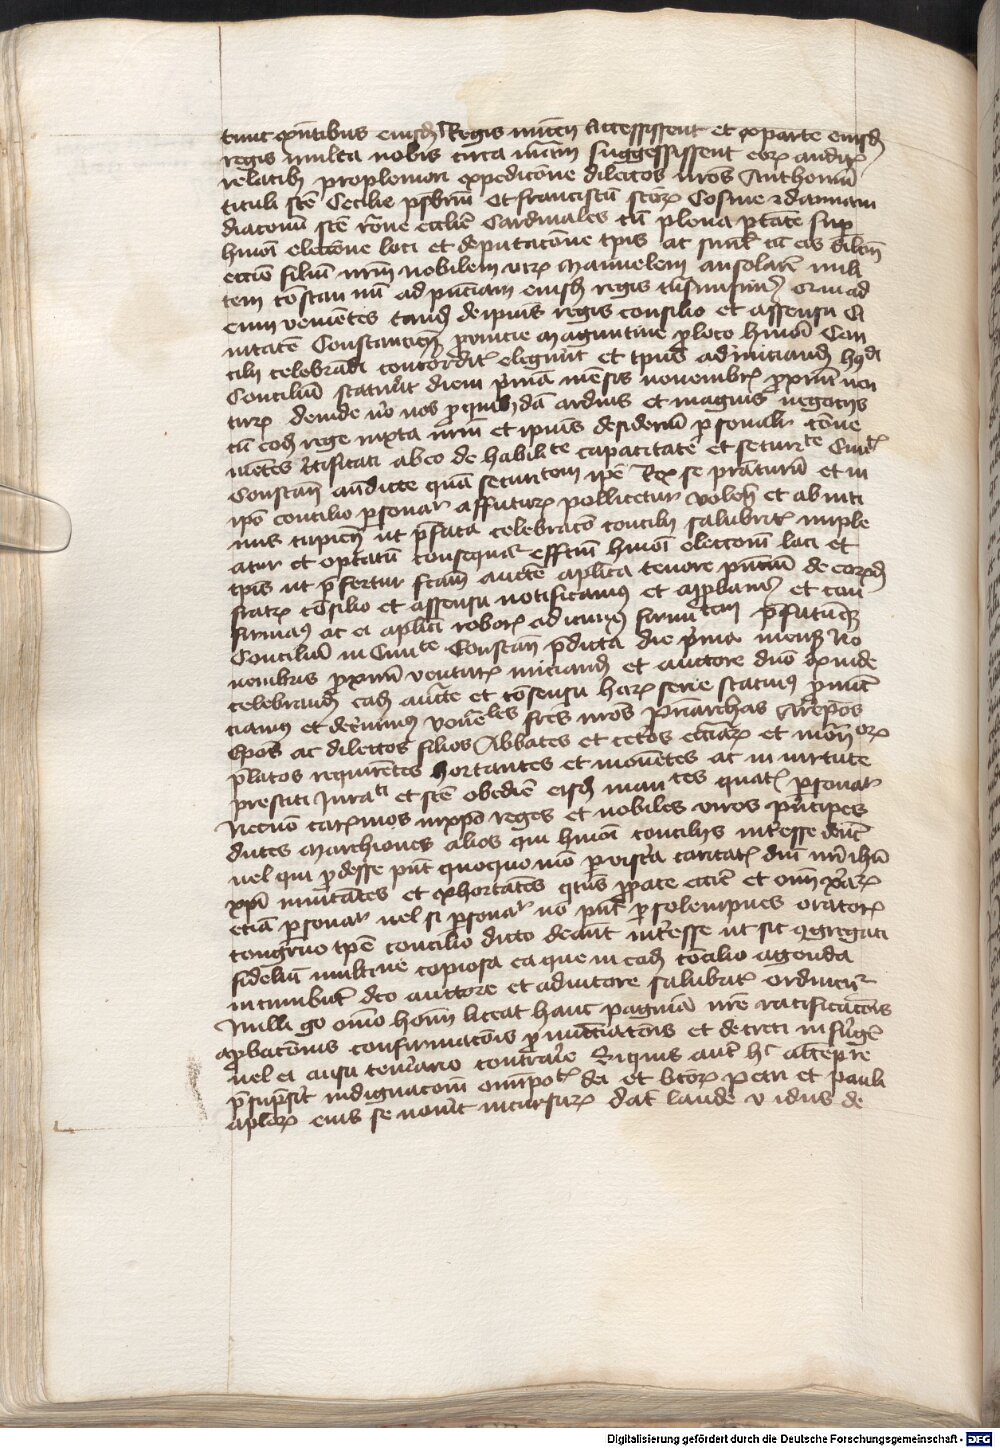 tunc presentibus eiusdem Regis nuncii Accessissent et ex parte eiusdem
regis multa nobis circa materiam suggessissent eorum auditis
relatibus pro pleniori expedicione dilectos nostros Anthonium
tituli sancte Cecilie presbiterum Et franciscum sanctorum Cosme et damiani
diaconum sancte romane ecclesie Cardinales cum plena potestate super
huiusmodi electione loci et deputacione temporis ac simul cum eis dilectum
eciam filium nostrum nobilem virum Manuelem militem
ad presenciam eiusdem regis transmisimus Qui ad
eum venientes tandem de ipsius regis consilio et assensu Ci
uitatem Constanciensem prouincie Maguntine pro loco huiusmodi Con
cilii celebrandi concorditer elegerunt et tempus ad iniciandum huiusmodi
Concilium statuerunt diem primam mensis nouembris proximum ven
turum deinde vero nos pro quibusdam arduis et magnis negociis
cum eodem rege iuxta nostrum et ipsius desiderium personaliter conue
nientes certificati ab eo de habilitate capacitate et securitate Ciuitatis
Constanciensis antedicte quam securitatem ipse Rex se prestaturum et in
ipso concilio personaliter affuturum pollicetur volentes et ab inti
mis cupientes ut prefata celebracio concilii salubriter imple
atur et optatum consequatur effectum huiusmodi electionem loci et
temporis ut prefertur factam auctoritate apostolica tenore presencium de eorundem
fratrum consilio et assensu notificamus et approbamus et con
firmamus ac ei apostolici roboris adicimus firmitatem prefatumque
Concilium in Ciuitate Constanciensi predicta die prima mensis No
uembris proximum venturi iniciandum et auctore domino exinde
celebrandum eadem auctoritate et consensu harum serie statuimus pronun
ciamus et decernimus venerabiles fratres nostros patriarchas Archiepiscopos
Episcopos ac dilectos filios Abbates et ceteros ecclesiarum et monasteriorum
prelatos requirentes hortantes et monentes ac in virtute
prestiti Iuramenti et sancte obediencie eisdem mandantes quatenus personaliter
Necnon carissimos in christo reges et nobiles viros principes
duces Marchiones alios qui huiusmodi conciliis interesse debent
vel qui prodesse possunt quoquo modo per viscera caritatis domini nostri ihesu
christi inuitantes et exhortantes quatenus pro pace ecclesie et omnium christianorum
eciam personaliter vel si personaliter non possunt per solempnes oratores
congruo tempore concilio dicto debeant interesse ut sic congregati
fidelium multitudine copiosa ea que in eodem concilio agenda
incumbunt deo auctore et adiutore salubriter ordinentur
Nulli ergo omnino hominum liceat hanc paginam nostre ratificacionis
approbacionis confirmacionis pronunctiacionis et decreti infringere
vel ei ausu temerario contraire Siquis autem hoc attemptare
presumpserit indignacionem omnipotentis dei et beatorum petri et pauli
apostolorum eius se nouerit incursurum dat laude v idus de
Digitalisierung gefördert durch die Deutsche Forschungsgemeinschaft - DFG